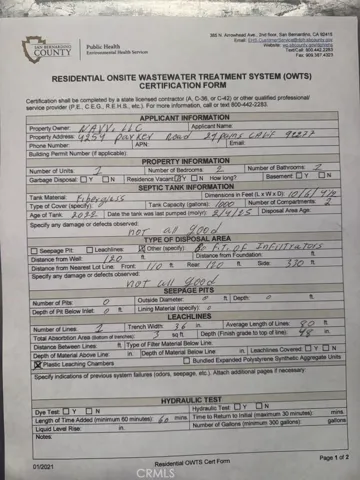 SAN BERNARDINO
COUNTY
Public Health
Environmental Health Services
385 N. Arrowhead Ave., 2nd floor, San Bernardino, CA 92415
RESIDENTIAL ONSITE WASTEWATER TREATMENT SYSTEM (OWTS)
CERTIFICATION FORM
Certification shall be completed by a state licensed contractor (A, C-36, or C-42) or other qualified professional
service provider (P.E., C.E.G., R.E.H.S., etc.). For more information, call or text 800-442-2283.
APPLICANT INFORMATION
Property Owner: NAVV, LLC Applicant Name:
Property Address: Road 29 Palms CALF 92277
Phone Number: APN: Email:
Building Permit Number (if applicable):
PROPERTY INFORMATION
Number of Units: Number of Bedrooms: 2 Number of Bathrooms: 2
Garbage Disposal: Y N Residence Vacant: Y N How long? Basement: Y N
SEPTIC TANK INFORMATION
Tank Material: Fiberglass Dimensions (L x W x D):
Type of Cover (specify): Tank Capacity (gallons): 1000 Number of Compartments: 2
Age of Tank: Date the tank was last pumped (mo/yr): Disposal Area Age:
Specify any damage or defects observed:
not all good
TYPE OF DISPOSAL AREA
Seepage Pit: Leachlines: Other (specify): FT. of Infiltrators
Distance from Well: Distance from Foundation: ft.
Distance from Nearest Lot Line: Front: 110 ft. Rear: ft. Side: 330 ft.
Specify any damage or defects observed:
not all good
SEEPAGE PITS
Number of Pits: 0 Outside Diameter: 0 ft. Depth: 0 ft.
Depth of Pit Below Inlet: 0 ft. Lining Material (specify): 0
LEACHLINES
Number of Lines: Trench Width: 36 in. Average Length of Lines: 80 ft.
Total Absorption Area (bottom of trenches): 3 sq ft. Depth (Finish grade to top of line): 48 in.
Distance Between Lines: ft. Type of Filter Material Below Line:
Depth of Material Above Line: in. Depth of Material Below Line: in. Leachlines Covered: Y N
Plastic Leaching Chambers Bundled Expanded Polystyrene Synthetic Aggregate Units
Specify indications of previous system failures (odors, seepage, etc.). Attach additional pages if necessary:
HYDRAULIC TEST
Dye Test: Y N Hydraulic Test: Y N
Length of Time Added (minimum 60 minutes): 60 mins. Time to Return to Initial (maximum 30 minutes): mins.
Liquid Level Rise: in. Number of Gallons (minimum 300 gallons): gallons
Notes:
01/2021 Residential OWTS Cert Form Page 1 of 2
CRMLS